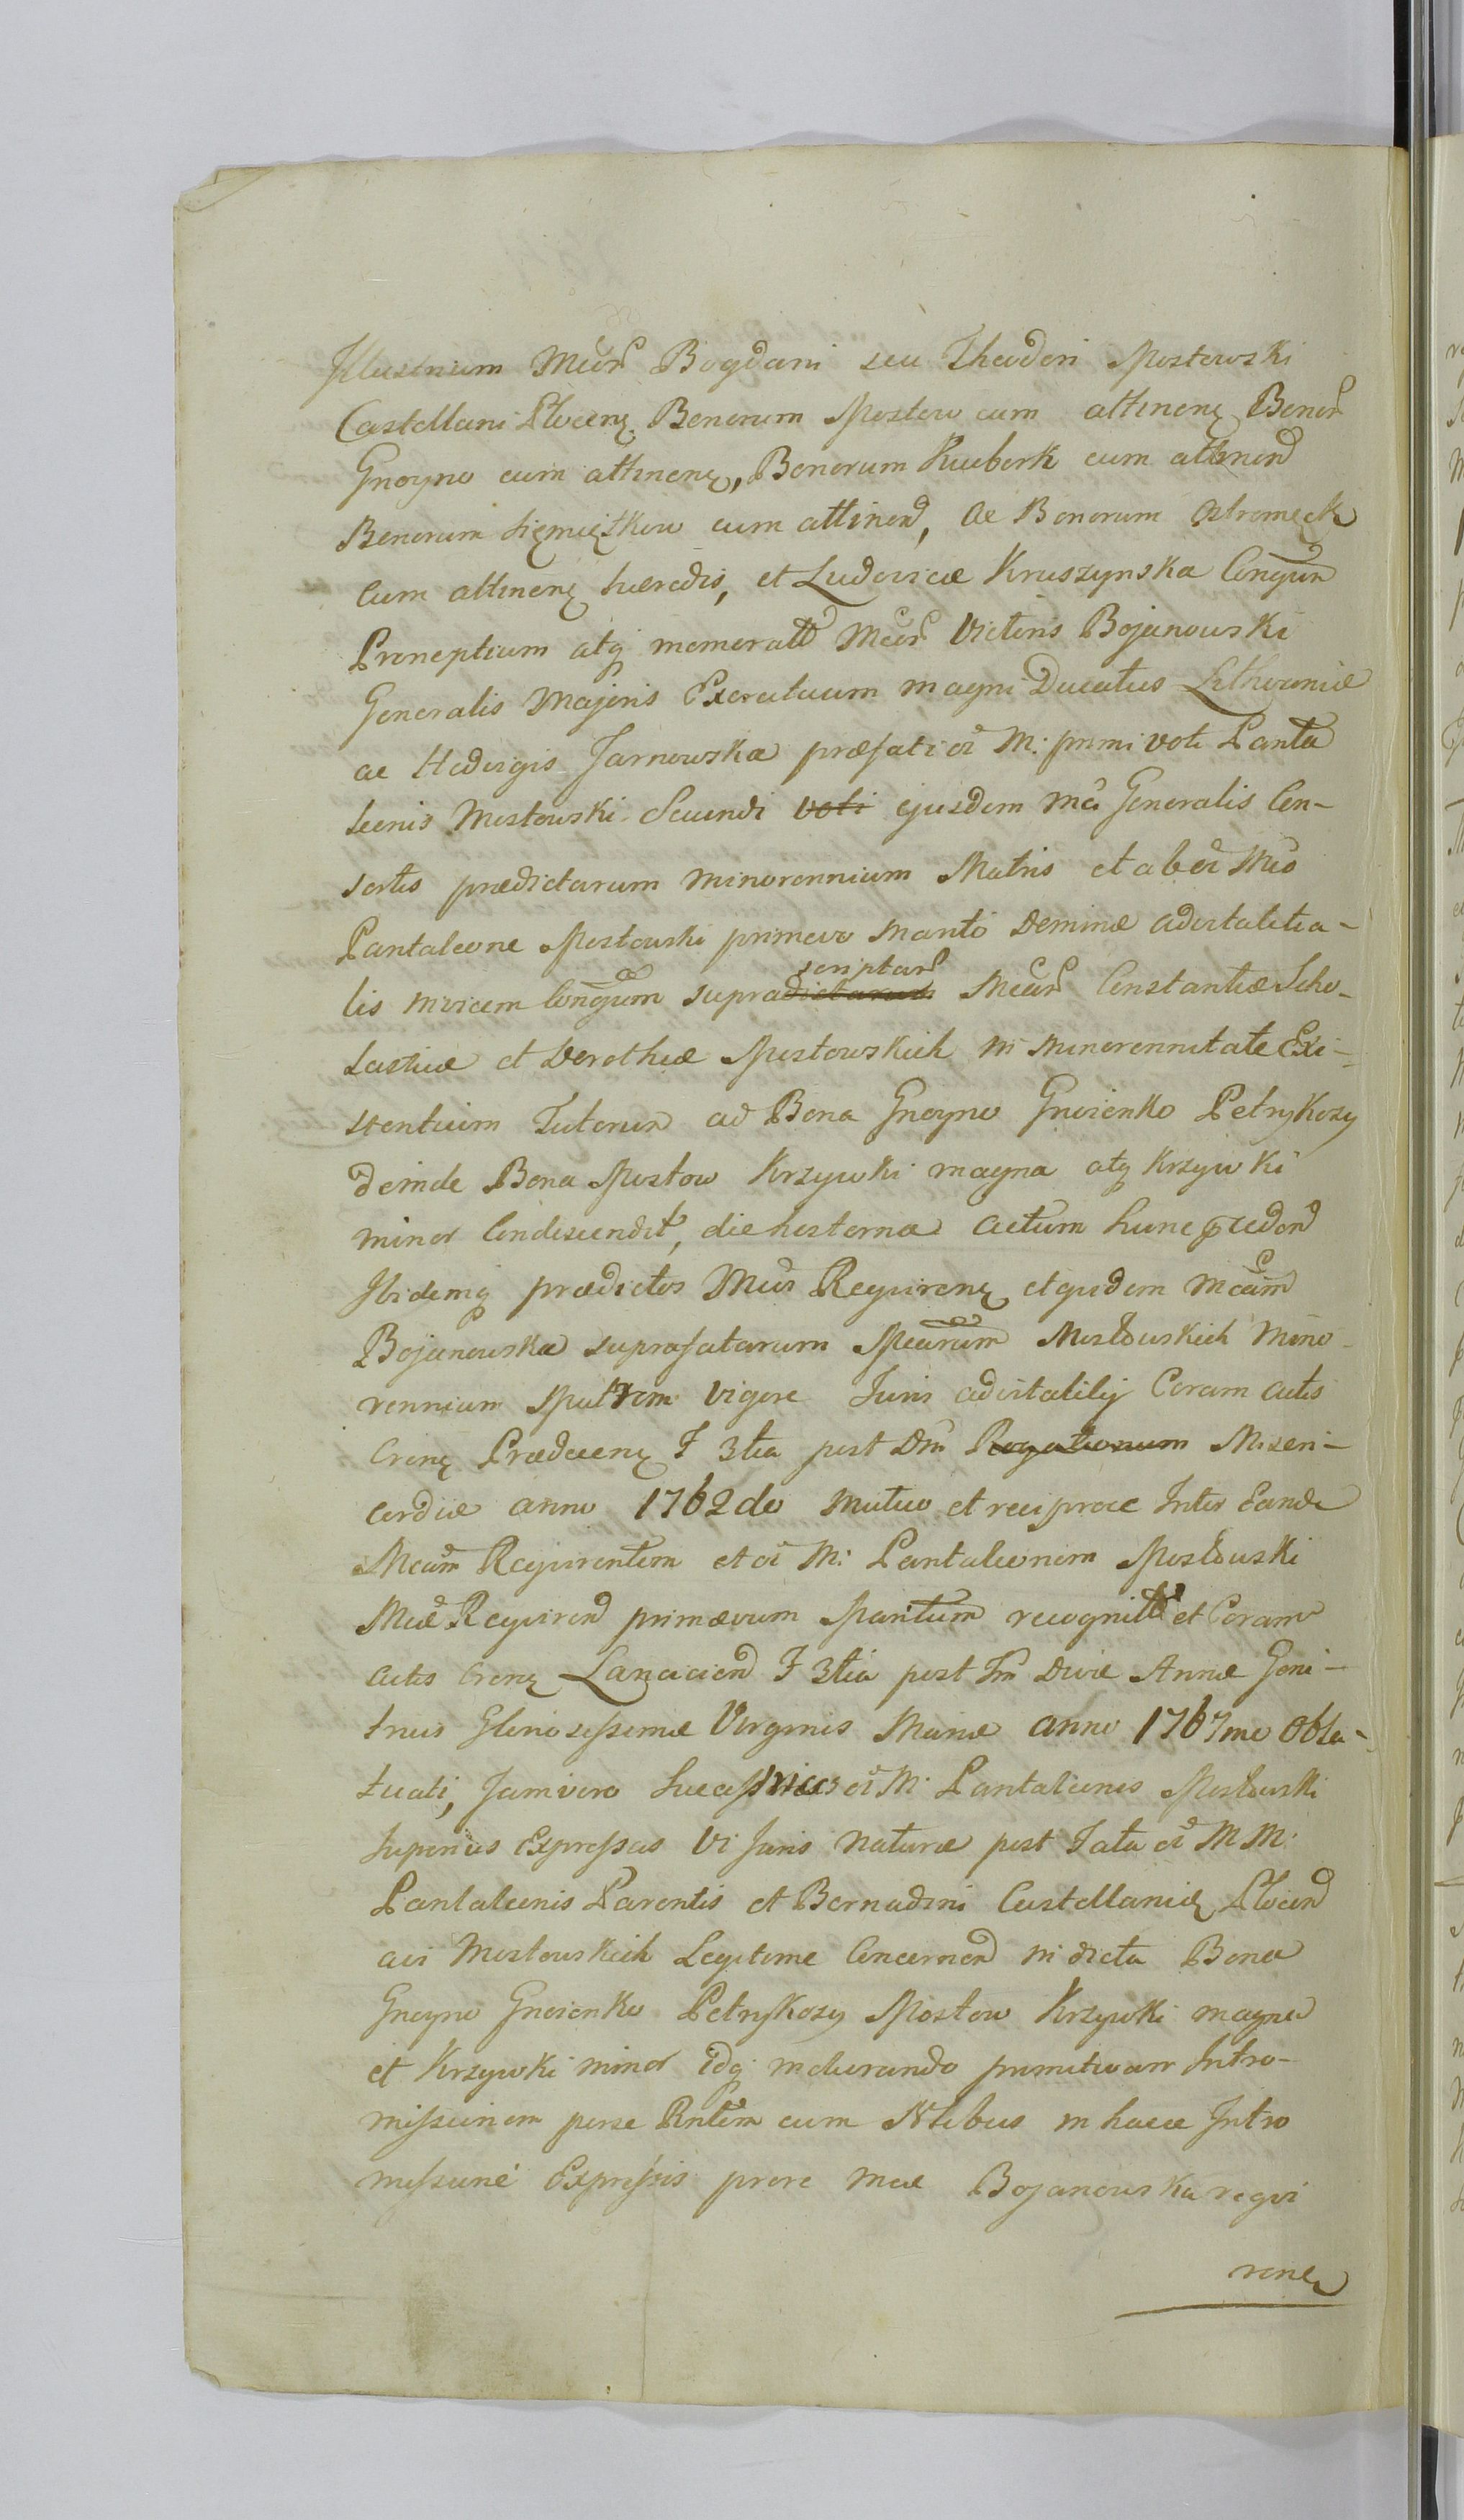 Illustrium Mcor Bogdani seu Theodori Mostowski
Castellani Plocenę. Bonorum Mostow cum attinenę Bonor
Gnoyno cum attinenę, Bonorum Kuubork cum attinend
Bonorum Sięmiętkow cum attinend, ac Bonorum Ostromęck
cum attinenę hæredis, et Ludovicæ Kruszynska Conjun
Proneptium atq memorató Mcor Victoris Bojanowski
Generalis Majoris Exercituum magni Ducatus Lithvaniæ
ac Hedvigis Jarnowska præfati oi M: primi voti Panta
leonis Mostowski Secundi voti ejusdem Mci Generalis Con-
sortis prædictarum minorennium Matris et ab oi Mco
Pantaleone Mostowski primevo Marito Dominæ advitalitia-
lis invicem Conjgum supradictarum scriptar Mcar Constantiæ Scho-
lasticæ et Dorotheæ Mostowskich in minorennitate Exi-
stentium Tutorum ad Bona Gnoyno Gnoienko Petrykozy
deinde Bona Mostow Krzywki magna atq Krzywki
minor Condiscendit, die hesterna actum hunc præden
Ibidemq prædictos Mcos Requirenę et quidem Mcam
Bojanowska suprafatarum Mcarum Mostowskich mino-
rennium Matrem vigore Juris advitalitij Coram actis
Crenę Prædecenę F 3tia post Dni Rogationum Miseri-
cordiæ anno 1762do mutuo et reciproce Inter Eande
Mcam Requirentem et oi M: Pantaleonem Mostowski
Mcæ Requirend primævum Maritum recognit et Coram
actis Crenę Lanciciend F 3tia post Fm Divæ Annæ Geni-
tricis Gloriosissimæ Virginis Mariæ anno 1767mo Obla-
tuati, Jamvero Successrices oi M: Pantaleonis Mostowski
superius Expressas vi Juris naturæ post Fata oi MM:
Pantaleonis Parentis et Bernadini Castellanię Plocend
avi Mostowskich Legitime Concernen in dicta Bona
Gnoyno Gnoienko Petrykozy Mostow Krzywki magna
et Krzywki minor idq indurando primitivam Intro-
missionem per se Rntem cum Nlibus in hacce Intro
missione Expressis pro re Mcæ Bojanowska requi
renę